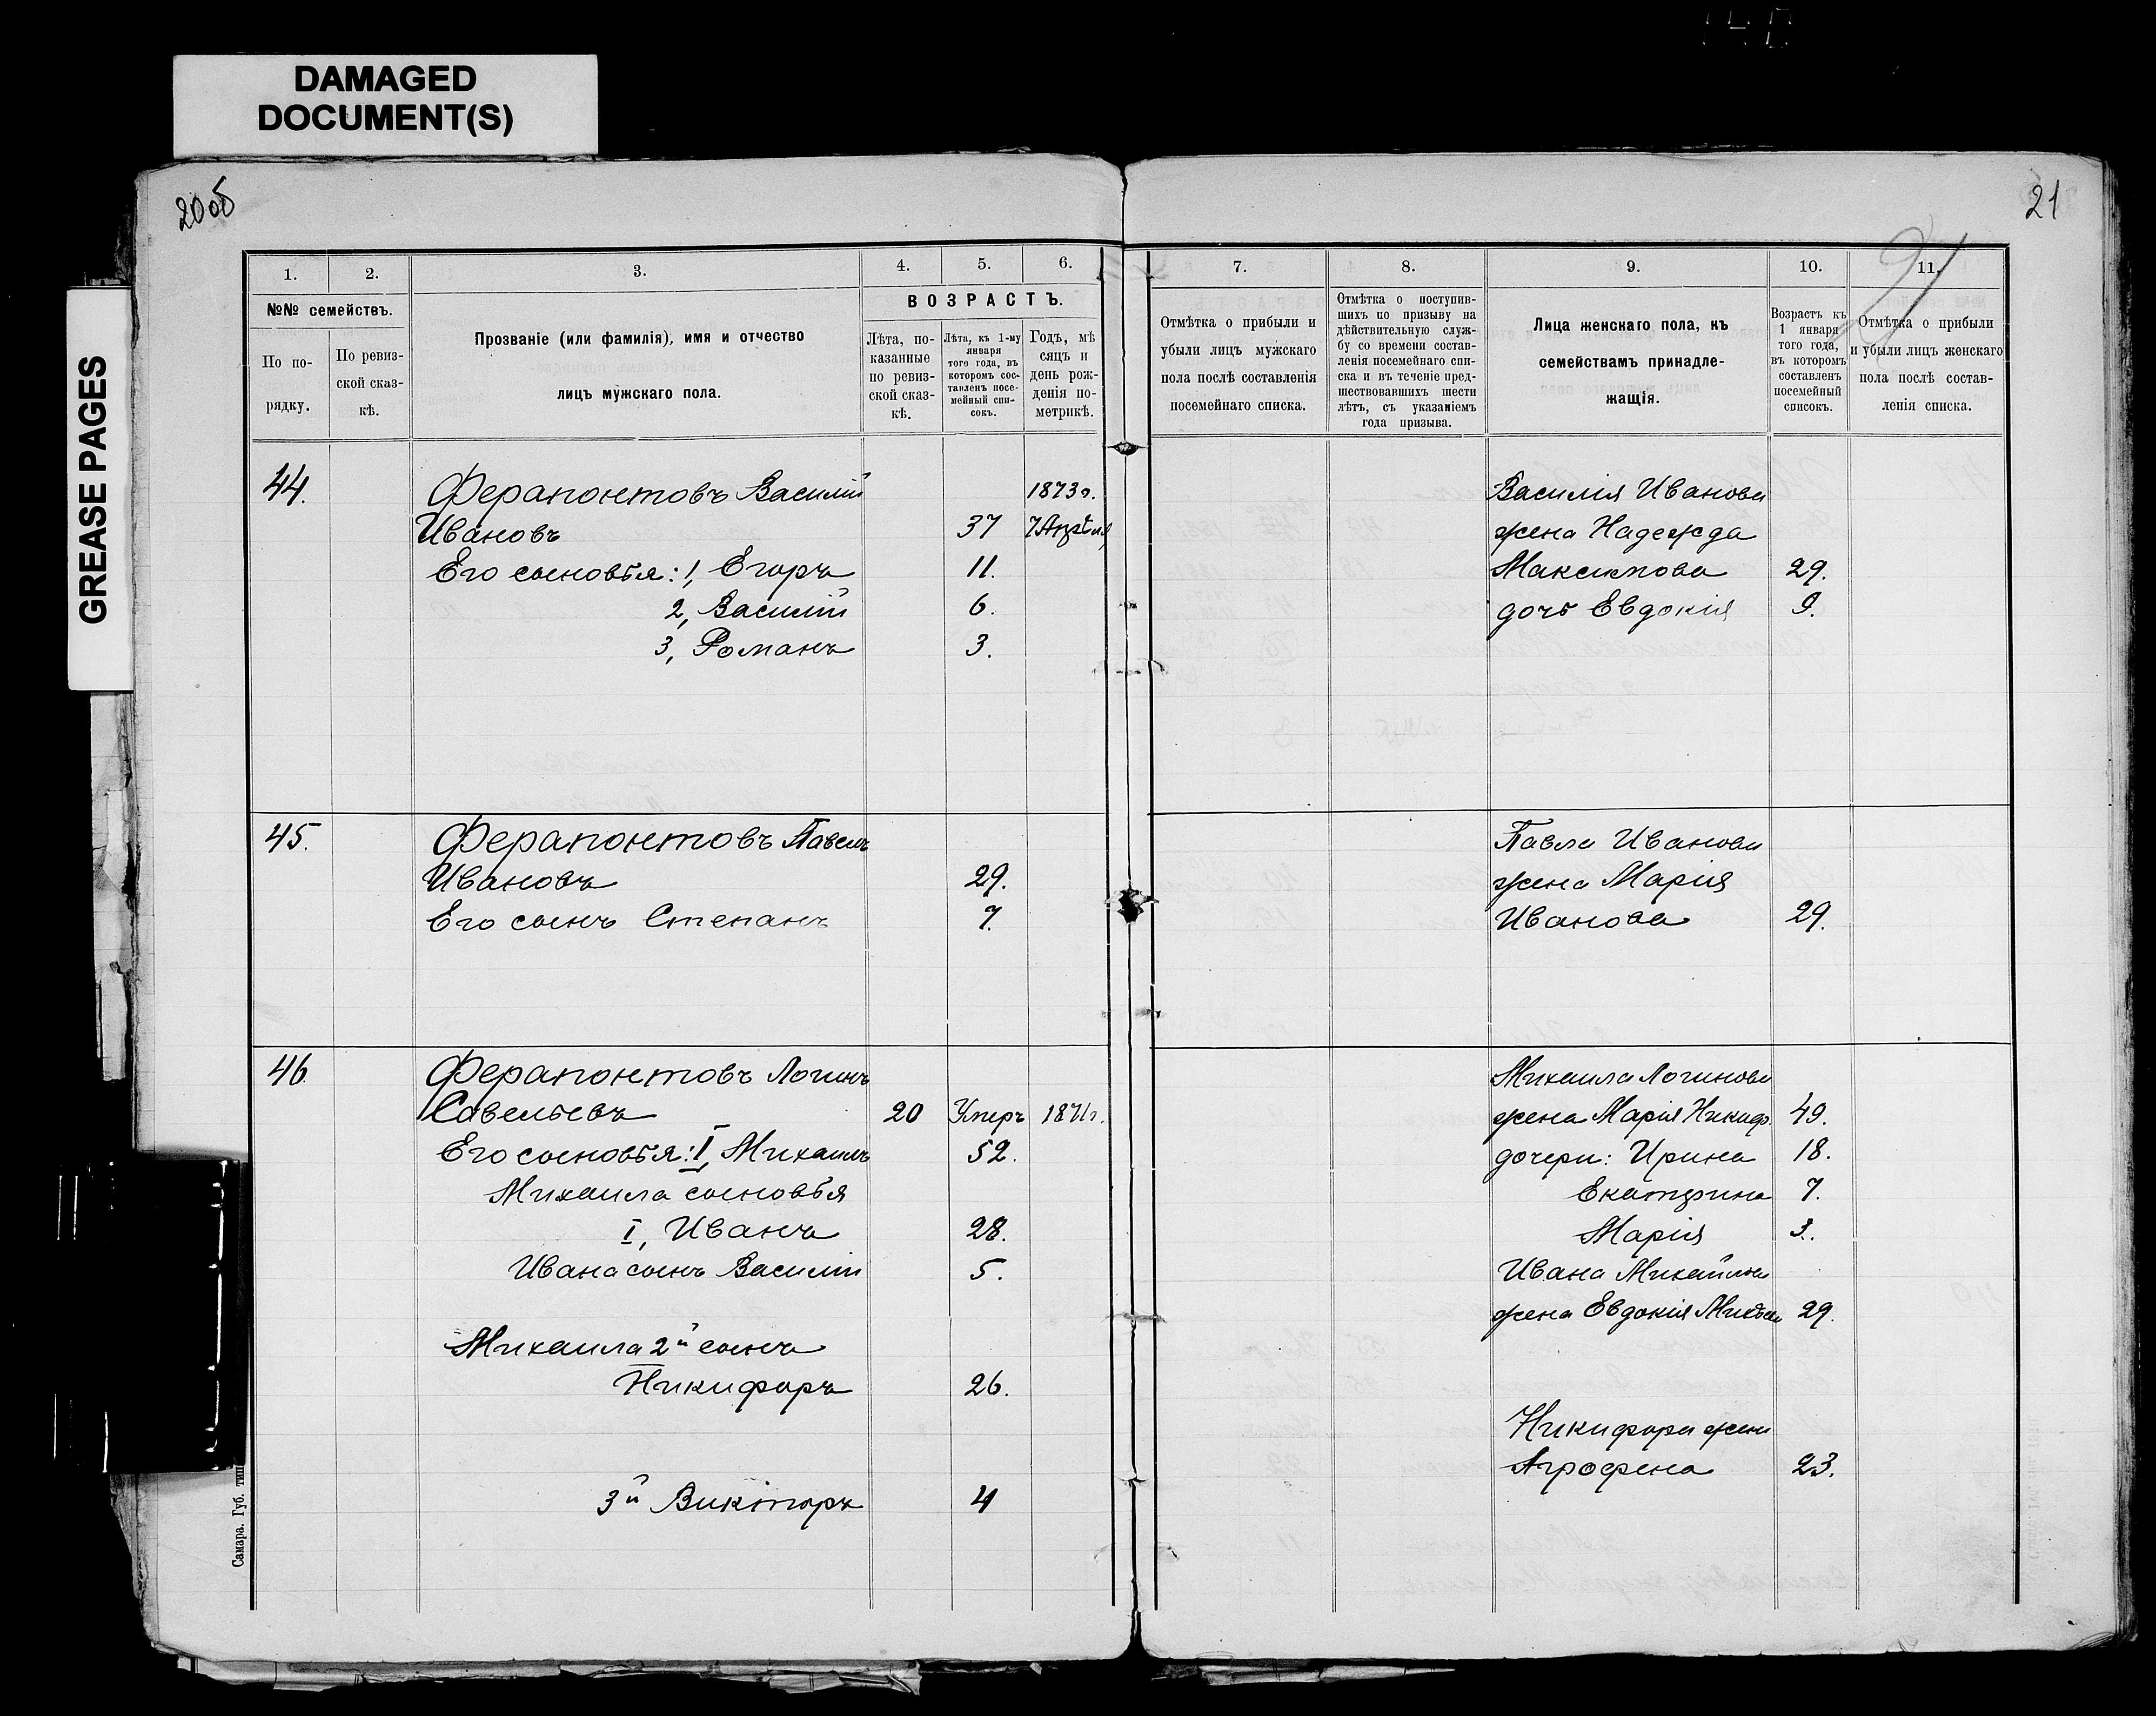 DAMAGED
DOCUMENT(S)
GREASE PAGES
20об
1. 2. 3. 4. 5. 6.
№№ семействъ.
По по-
рядку.
По ревиз-
ской сказ-
кѣ.
Прозваніе (или фамилія), имя и отчество
лицъ мужскаго пола.
ВОЗРАСТЪ.
Лѣта, по-
казанные
по ревиз-
ской сказ-
кѣ.
Лѣта, къ 1-му
января
того года, въ
которомъ сос-
тавленъ посе-
мейный спи-
сокъ.
Годъ, мѣ
сяцъ и
день рож-
денія по-
метрикѣ.
44. Ферапонтовъ Василій 1873г.
Ивановъ 37 7 Апрѣля
Его сыновья: 1, Егоръ 11.
2, Василій 6.
3, Романъ 3.
45. Ферапонтовъ Павелъ
Ивановъ 29.
Его сынъ Степанъ 7.
46. Ферапонтовъ Логинъ
Савельевъ 20 Умеръ 1871г.
Его сыновья: I, Михаилъ 52.
Михаила сыновья
I, Иванъ 28.
Ивана сынъ Василій 5.
Михаила 2й сынъ
Никифоръ 26.
3й Викторъ 4
Самара. Губ. тип
21
21
7. 8. 9. 10. 11.
Отмѣтка о прибыли и
убыли лицъ мужскаго
пола послѣ составленія
посемейнаго списка.
Отмѣтка о поступив-
шихъ по призыву на
дѣйствительную служ-
бу со времени состав-
ленія посемейнаго спи-
ска и въ теченіе пред-
шествовавшихъ шести
лѣтъ, съ указаніемъ
года призыва.
Лица женскаго пола, къ
семействамъ принадле-
жащія.
Возрастъ къ
1 января
того года,
въ которомъ
составленъ
посемейный
списокъ.
Отмѣтка о прибыли
и убыли лицъ женскаго
пола послѣ состав-
ленія списка.
Василія Иванова
жена Надежда
Максимова 29.
дочь Евдокія 9.
Павла Иванова
жена Марія
Иванова 29.
Михаила Логинова
жена Марія Никиф. 49.
дочери: Ирина 18.
Екатерина 7.
Марія 3.
Ивана Михайлова
жена Евдокія 29.
Никифора жена
Агрофена 23.